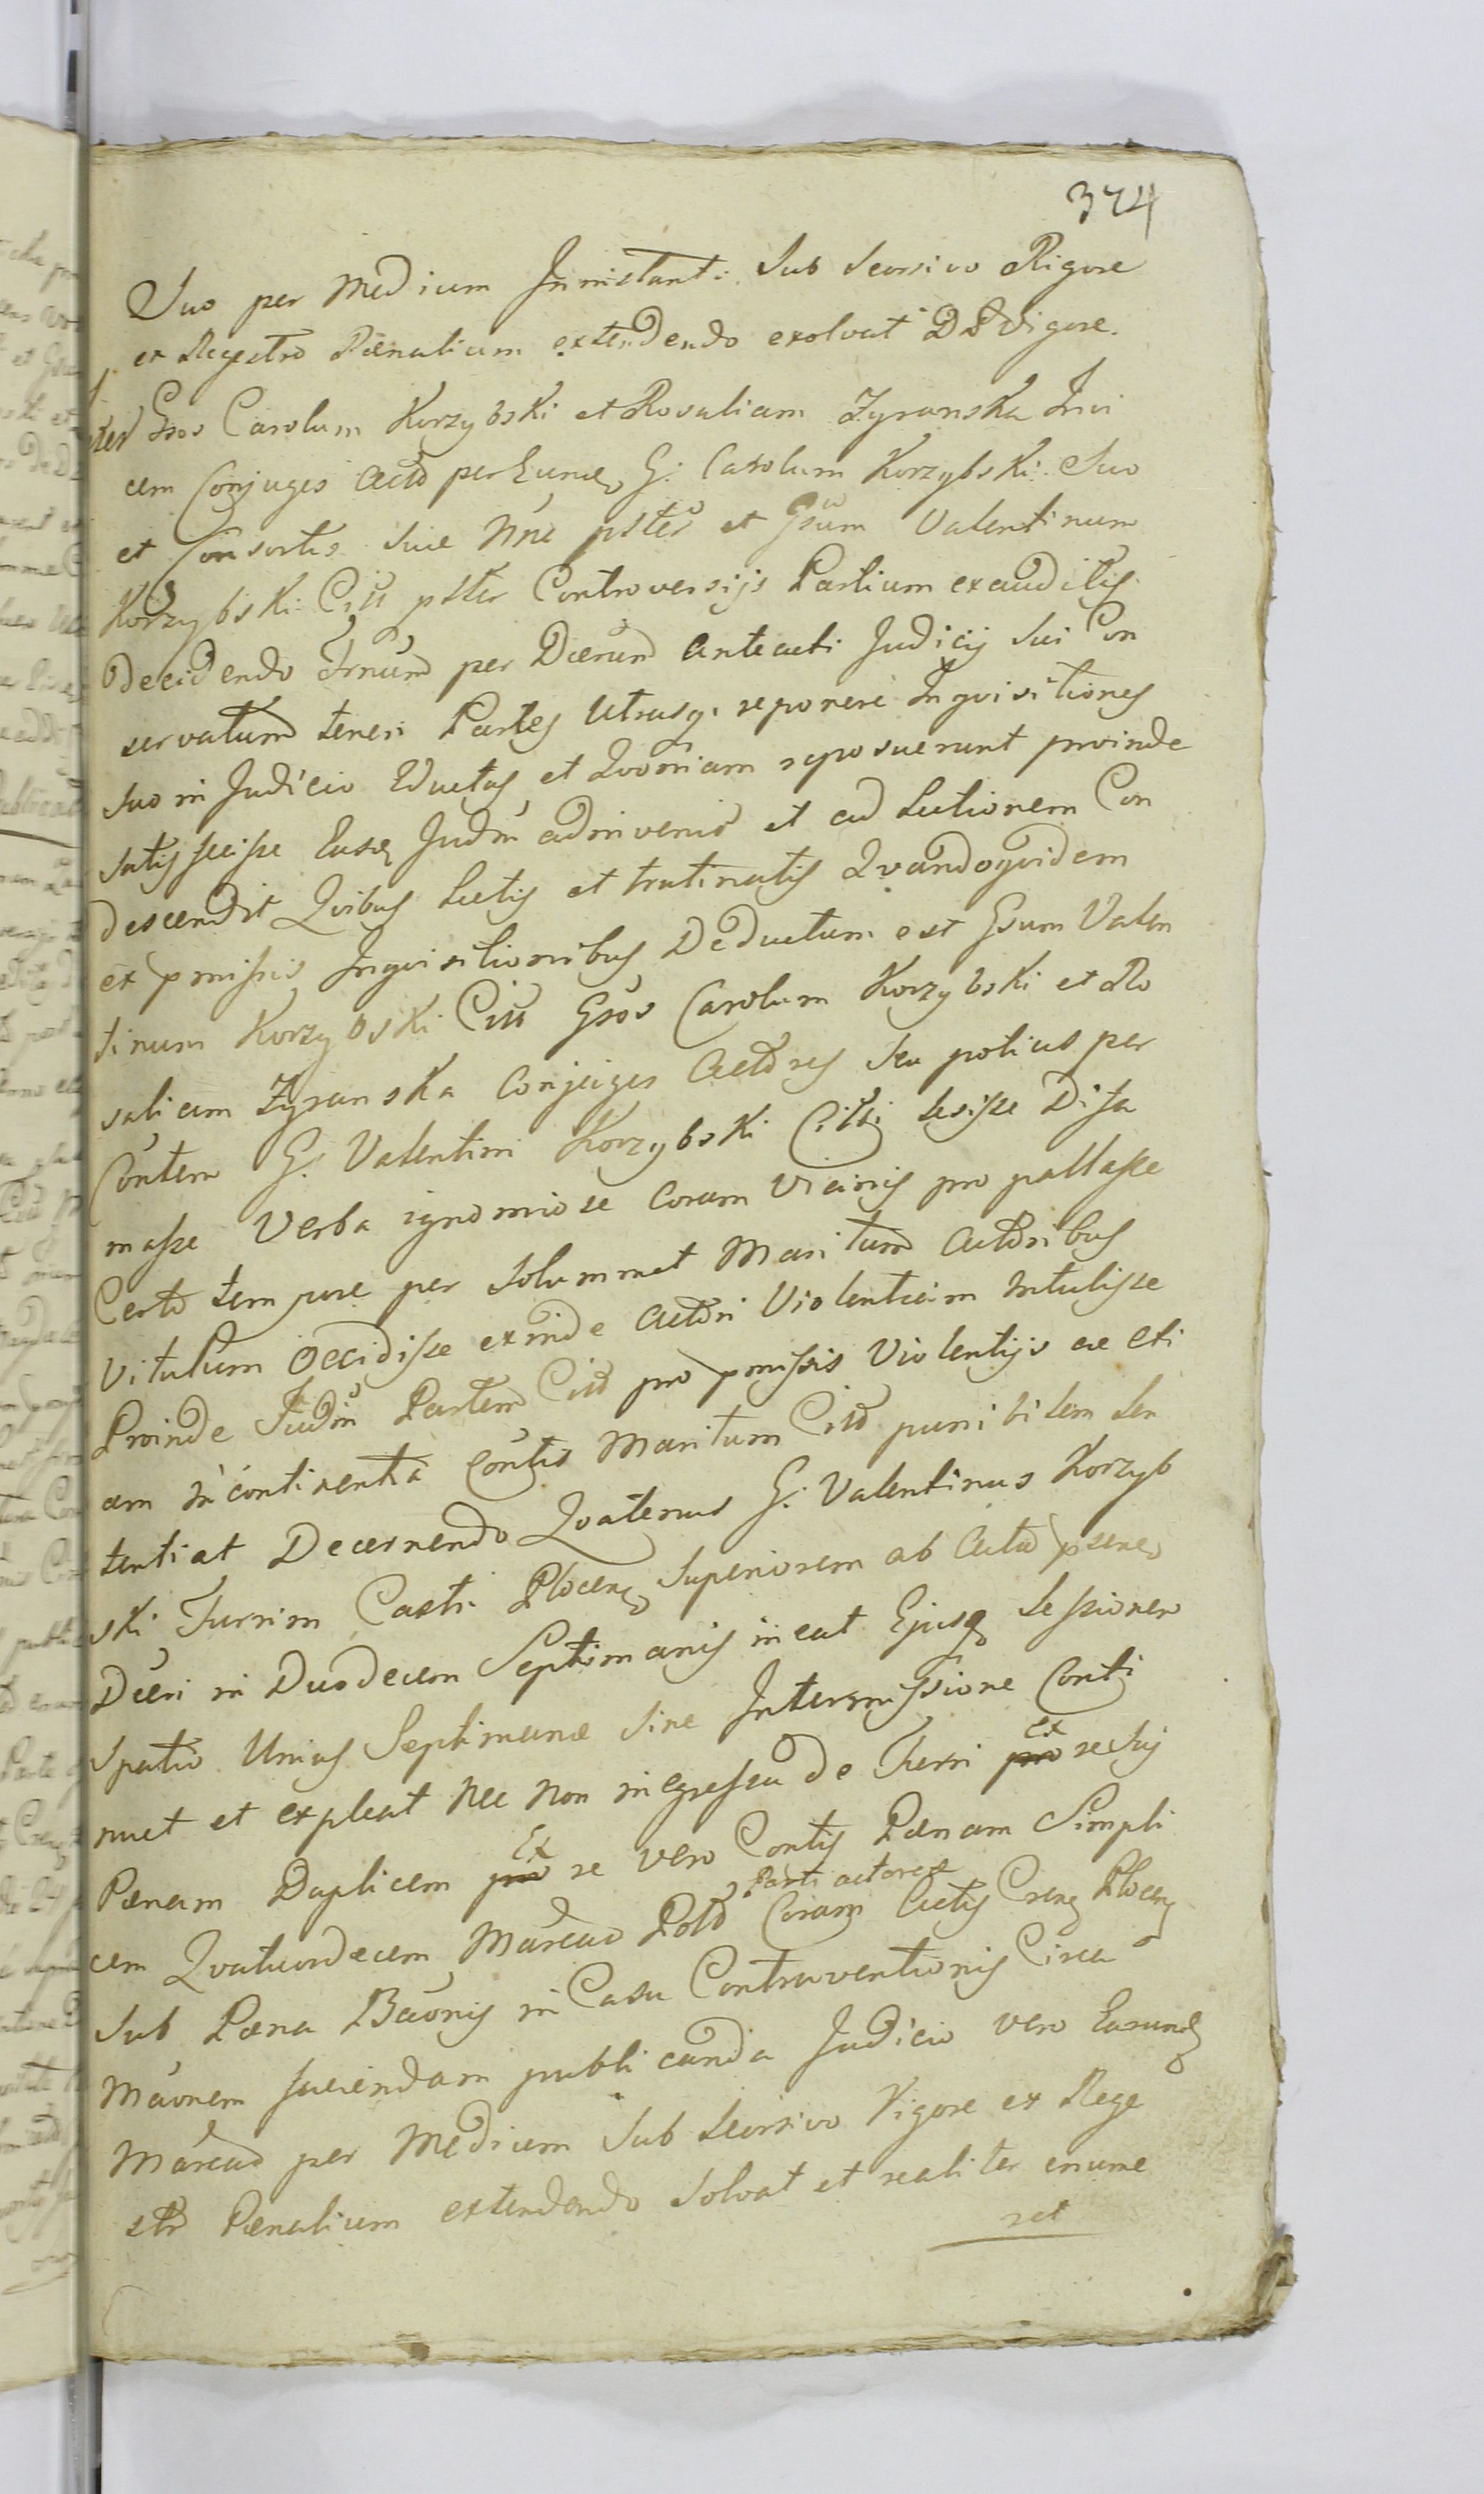 374
Suo per Medium Inniıstanti Sub Seorsivo Rigore
ex Regestro Pænalium extendendo exolvat DD Vigore.
Inter Gsos Carolum Korzybski et Rosaliam Zyranska Invi
cem Conjuges Actō per Eunde G: Carolum Korzybski Suo
et Consortis Suæ Nñe pster et Gsum Valentinum
Korzybski Citt pster Controversijs Partium exauditis
Decidendo Trnum per Dcrum anteacti Judicij Sui Con
servatum teneri Partes Utrasq. reponere Inqvisitiones
Suo in Judicio Eductas et Qvoniam reposuerunt proinde
Satisfecisse Easde Judm adinvenit et ad Lectionem Con
descendit Qvibus Lectis et trutinatis Qvandoqvidem
ex pmissis Inqvisitionibus Deductum est Gsum Valen
tinum Korzybski Citt Gsos Carolum Korzybski et Ro
saliam Zyranska Conjuges Actores Seu potius per
Contem G. Valentini Korzybski Citti Lesisse Difa
masse Verba ignomiose Coram Vicinis pro pallasse
Certo tempore per Solummet Maritum Actoribus
Vitulum Occidisse exinde Actori Violentiam intulisse
Proinde Judm Partem Citt pro pmissis Violentijs ac Eti
am incontinentia Contis Maritum Citt punibilem Sen
tentiat Decernendo Qvatenus G. Valentinus Korzyb
ski Turrim Castri Plocen Superiorem ab Actu psenes
Dcri in Duodecem Septimanis ineat Ejusq Sessionem
Spatio Unius Septimanæ Sine Intermissione Conti
nuet et expleat Nec Non in egressu de Turri pro Ex se Suj
Pænam Duplicem pro Ex se vero Contis Pænam Simpli
cem Qvatuordecem Marcas Pold Parti actoreæ Coram Actis Cren Plocen
Sub Pæna Bãonis in Casu Contraventionis Circa
Mãonem faciendam publicanda Judicio vero Earunde
Marcas per Medium Sub Seorsivo Vigore ex Rege
stro Pænalium extendendo Solvat et realiter enume
ret